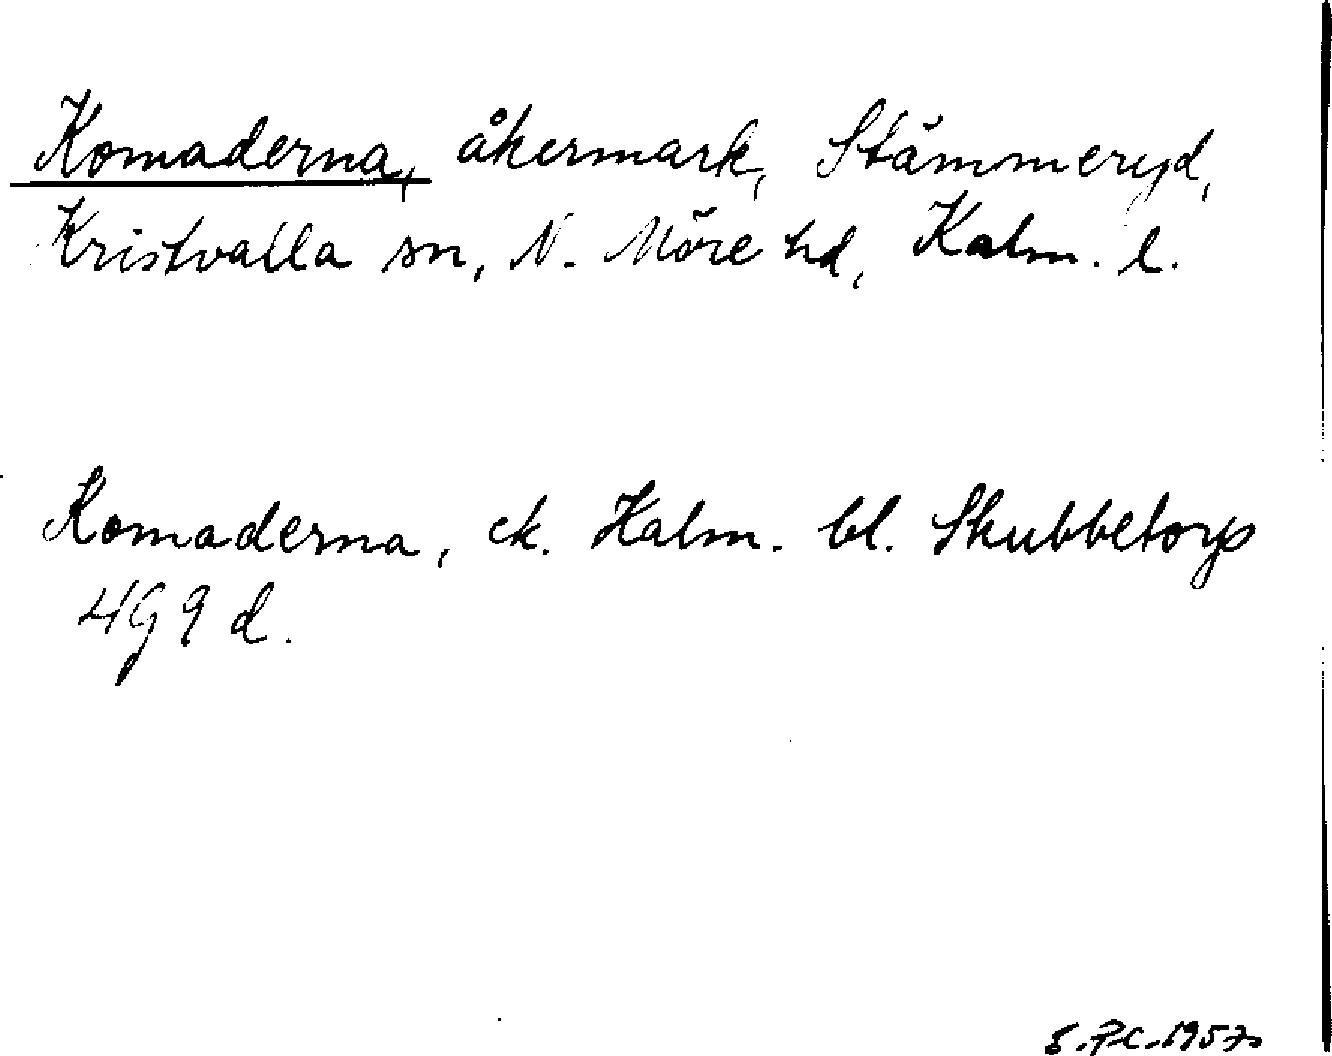 Komaderna, åkermark, Stämmeryd,
Kristvalla sn, N. Möre hd, Kalm. l.
Komaderna, ek. Kalm. bl. Skubbetorp
4G 9 d.
S.P.C. 1957.